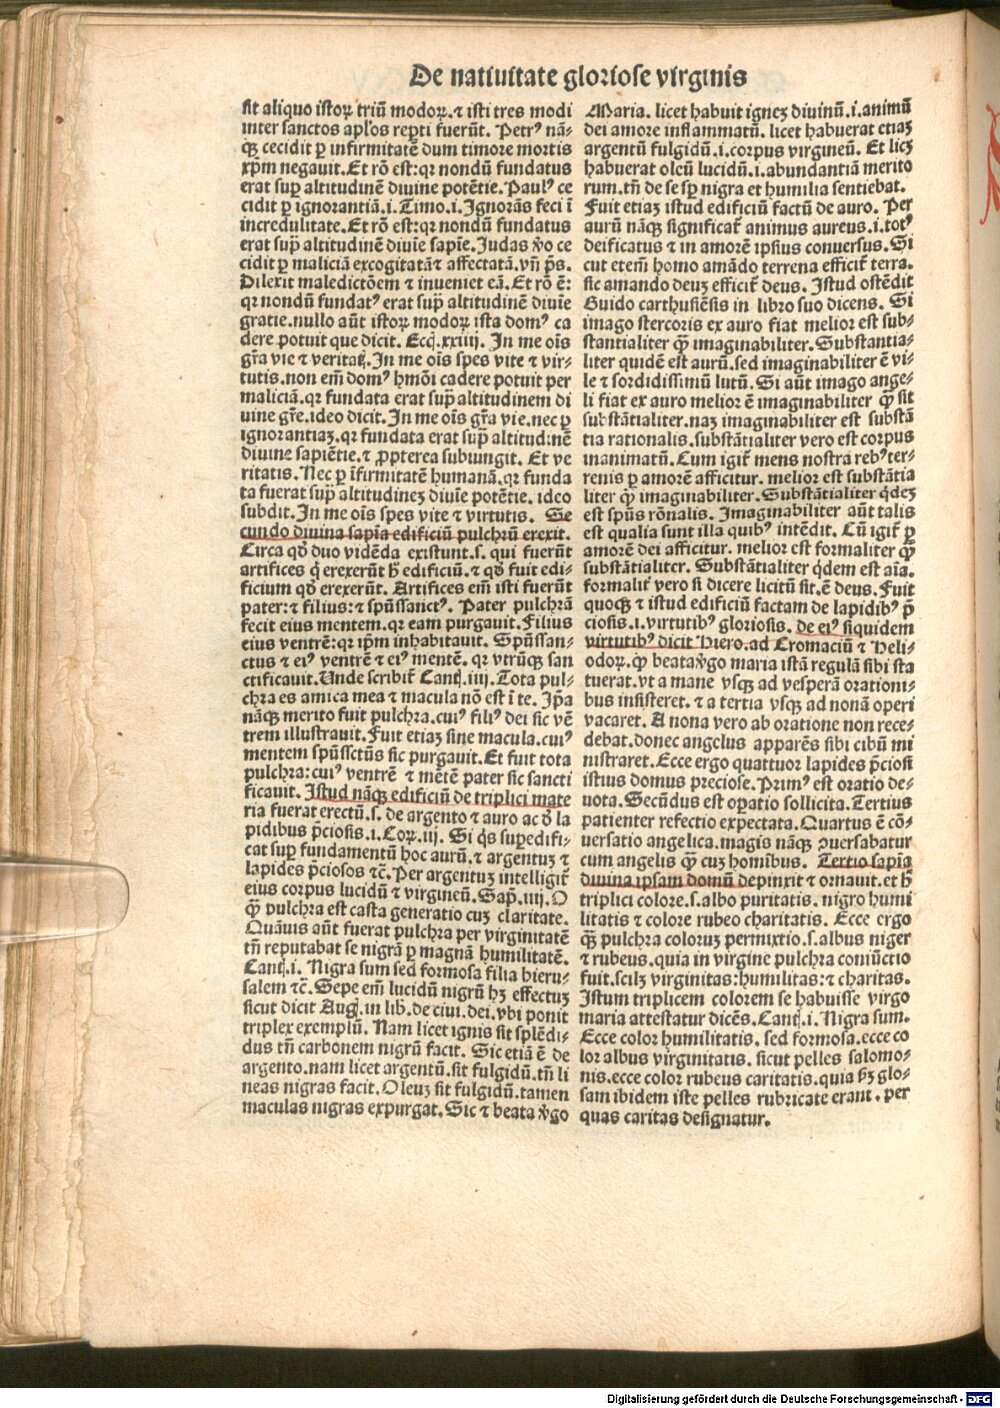 De natiuitate gloriose virginis
sit aliquo istoꝝ triū modoꝝ.⁊ isti tres modi
inter sanctos aplos repti fuerūt. Petrꝰ nā⸗
qꝫ cecidit ꝑ infirmitatē dum timore mortis
xp̄m negauit. Et rō est:qꝛ nondū fundatus
erat suꝑ altitudinē diuine potētie. Paulꝰ ce
cidit ꝑ ignorantiā.i. Timo.i. Ignorās feci ī
incredulitate. Et rō est:qꝛ nondū fundatus
erat suꝑ altitudinē diuīe sapīe. Judas v̊o ce
cidit ꝑ maliciā excogitatā⁊ affectatā.vñ p̄s.
Dilexit maledictōem ⁊ inueniet eā. Et rō ē:
qꝛ nondū fundatꝰ erat suꝑ altitudinē diuīe
gratie.nullo aūt istoꝝ modoꝝ ista domꝰ ca
dere potuit que dicit. Ecc̄i.xxiiij. In me oīs
gr̄a vie ⁊ veritat̄. In me oīs spes vite ⁊ vir⸗
tutis.non em̄ domꝰ hmōi cadere potuit per
maliciā.qꝛ fundata erat suꝑ altitudinem di
uine gr̄e.ideo dicit. In me oīs gr̄a vie.nec ꝑ
ignorantiaꝫ.qꝛ fundata erat suꝑ altitudinē
diuine sapiētie.⁊ ꝓpterea subiungit. Et ve
ritatis. Nec ꝑ īfirmitatē humanā.qꝛ funda
ta fuerat suꝑ altitudineꝫ diuīe potētie. ideo
subdit. In me oīs spes vite ⁊ virtutis. Se
cundo diuina sapīa edificiū pulchrū erexit.
Circa qđ duo vidēda existunt.s. qui fuerūt
artifices q̄ erexerūt h̄ edificiū.⁊ qđ fuit edi⸗
ficium qđ erexerūt. Artifices em̄ isti fuerūt
pater:⁊ filius:⁊ spūssanctꝰ. Pater pulchrā
fecit eius mentem.qꝛ eam purgauit. Filius
eius ventrē:qꝛ ip̄m inhabitauit. Spūssan⸗
ctus ⁊ eiꝰ ventrē ⁊ eiꝰ mentē. qꝛ vtrūqꝫ san
ctificauit. Unde scribit̄ Cant̄.iiij. Tota pul⸗
chra es amica mea ⁊ macula nō est ī te. Ip̄a
nāqꝫ merito fuit pulchra.cuiꝰ filiꝰ dei sic vē
trem illustrauit. Fuit etiaꝫ sine macula.cuiꝰ
mentem spūssctūs sic purgauit. Et fuit tota
pulchra:cuiꝰ ventrē ⁊ mētē pater sic sancti
ficauit. Istud nāqꝫ edificiū de triplici mate
ria fuerat erectū.s. de argento ⁊ auro ac đ la
pidibus p̄ciosis.i. Coꝝ.iij. Si q̄s suꝑedifi⸗
cat suꝑ fundamentū hoc aurū.⁊ argentuꝫ ⁊
lapides p̄ciosos ⁊c̄. Per argentuꝫ intelligit̄
eius corpus lucidū ⁊ virgineū. Sap̄.iiij. O
ꝙ̄ pulchra est casta generatio cuꝫ claritate.
Quāuis aūt fuerat pulchra per virginitatē
tn̄ reputabat se nigrā ꝑ magnā humilitatē.
Cant̄.i. Nigra sum sed formosa filia hieru⸗
salem ⁊c̄. Sepe em̄ lucidū nigrū hꝫ effectuꝫ
sicut dicit Auḡ.in lib.de ciui.dei.vbi ponit
triplex exemplū. Nam licet ignis sit splēdi⸗
dus tn̄ carbonem nigrū facit. Sic etiā ē de
argento.nam licet argentū.sit fulgidū.tn̄ li
neas nigras facit. Oleuꝫ sit fulgidū.tamen
maculas nigras expurgat. Sic ⁊ beata v̊go
Maria. licet habuit igneꝫ diuinū.i.animū
dei amore inflammatū. licet habuerat etiaꝫ
argentū fulgidū.i.corpus virgineū. Et licꝫ
habuerat oleū lucidū.i.abundantiā merito
rum.tn̄ de se sꝑ nigra et humilia sentiebat.
Fuit etiaꝫ istud edificiū factū de auro. Per
aurū nāqꝫ significat̄ animus aureus.i.totꝰ
deificatus ⁊ in amorē ipsius conuersus. Si
cut etem̄ homo amādo terrena efficit̄ terra.
sic amando deuꝫ efficit̄ deus. Istud ostēdit
Guido carthusiēsis in libro suo dicens. Si
imago stercoris ex auro fiat melior est sub⸗
stantialiter ꝙ̄ imaginabiliter. Substantia⸗
liter quidē est aurū.sed imaginabiliter ē vi⸗
le ⁊ sordidissimū lutū. Si aūt imago ange⸗
li fiat ex auro melior ē imaginabiliter ꝙ̄ sit
substātialiter.naꝫ imaginabiliter est substā
tia rationalis.substātialiter vero est corpus
inanimatū. Cum igit̄ mens nostra rebꝰ ter⸗
renis ꝑ amorē afficitur. melior est substātia
liter ꝙ̄ imaginabiliter. Substātialiter q̄deꝫ
est spūs rōnalis. Imaginabiliter aūt talis
est qualia sunt illa quibꝰ intēdit. Cū igit̄ ꝑ
amorē dei afficitur. melior est formaliter ꝙ̄
substātialiter. Substātialiter q̄dem est aīa.
formalit̄ vero si dicere licitū sit.ē deus. Fuit
quoqꝫ ⁊ istud edificiū factam de lapidibꝰ p̄
ciosis.i.virtutibꝰ gloriosis. de eiꝰ siquidem
virtutibꝰ dicit Hiero.ad Cromaciū ⁊ Heli⸗
odoꝝ.ꝙ beata v̊go maria istā regulā sibi sta
tuerat.vt a mane vsqꝫ ad vesperā orationi⸗
bus insisteret.⁊ a tertia vsqꝫ ad nonā operi
vacaret. A nona vero ab oratione non rece⸗
debat.donec angelus apparēs sibi cibū mi
nistraret. Ecce ergo quattuor lapides p̄ciosi
istius domus preciose. Primꝰ est oratio de⸗
uota. Secūdus est opatio sollicita. Tertius
patienter refectio expectata. Quartus ē cō⸗
uersatio angelica.magis nāqꝫ ꝯuersabatur
cum angelis ꝙ̄ cuꝫ hominibus. Tertio sapīa
diuina ipsam domū depinxit ⁊ ornauit.et h̄
triplici colore.s.albo puritatis. nigro humi
litatis ⁊ colore rubeo charitatis. Ecce ergo
ꝙ̄ pulchra coloruꝫ permixtio.s.albus niger
⁊ rubeus.quia in virgine pulchra coniūctio
fuit.scilꝫ virginitas:humilitas:⁊ charitas.
Istum triplicem colorem se habuisse virgo
maria attestatur dicēs. Cant̄.i. Nigra sum.
Ecce color humilitatis. sed formosa.ecce co
lor albus virginitatis. sicut pelles salomo⸗
nis.ecce color rubeus caritatis.quia hꝫ glo⸗
sam ibidem iste pelles rubricate erant. per
quas caritas designatur.
Digitalisierung gefördert durch die Deutsche Forschungsgemeinschaft - DFG